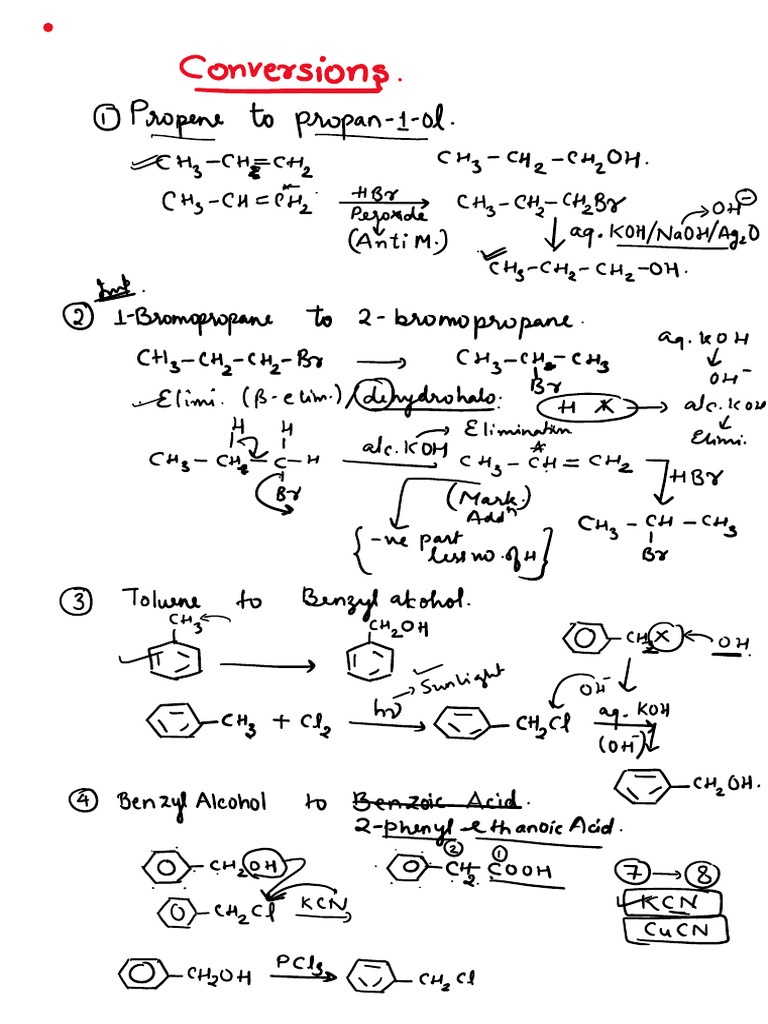 Conversions.
① Propene to propan-1-ol.
CH3-CH=CH2 CH3-CH2-CH2OH.
CH3-CH=CH2 HBr Peroxide (Anti M.) CH3-CH2-CH2Br → OH⊖
aq. KOH/NaOH/Ag2O
CH3-CH2-CH2-OH.
Imp.
② 1-Bromopropane to 2-bromopropane.
CH3-CH2-CH2-Br → CH3-CH-CH3
Br
aq. KOH
↓
OH-
Elimi. (β-elim.)/dehydrohalo. H X → alc. KOH
↓
Elimi.
H H
CH3-CH-C-H alc. KOH → Elimination CH3-CH=CH2 HBr
Br
(Mark. Addn)
CH3-CH-CH3
Br
{-ve part
less no. of H}
③ Toluene to Benzyl alcohol.
CH3 CH2OH
CH2X OH
CH3 + Cl2 hν → Sunlight CH2Cl OH- aq. KOH (OH-)
CH2OH.
④ Benzyl Alcohol to Benzoic Acid.
2-phenyl ethanoic Acid.
② ①
CH2OH CH2 COOH ⑦ → ⑧
CH2Cl KCN KCN
CuCN
CH2OH PCl3 → CH2Cl